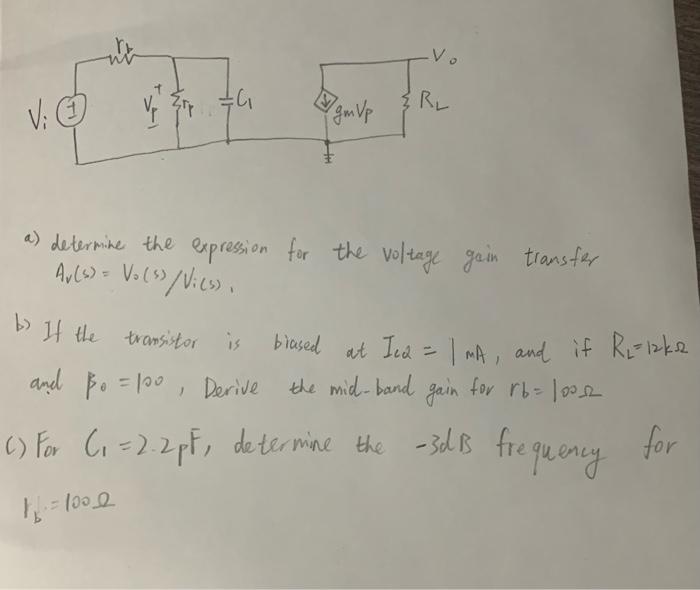 rb
Vi
+
Vp
-
rp
C1
gmVp
RL
Vo
a) determine the expression for the voltage gain transfer
Av(s) = Vo(s)/Vi(s).
b) If the transistor is biased at ICQ = 1 mA, and if RL=12kΩ
and β0 = 100, Derive the mid-band gain for rb=100Ω
c) For C1 = 2.2pF, determine the -3dB frequency for
rb=100Ω